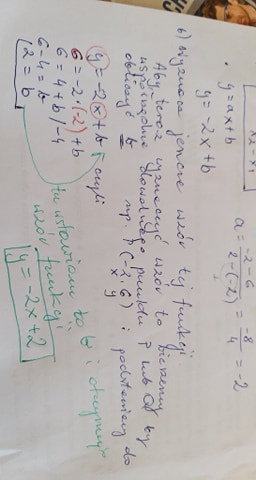 x2-x1
a = -2-6 / 2-(-2) = -8 / 4 = -2
y = ax+b
y = -2x+b
b) Wyznacz jeszcze wzór tej funkcji.
Aby teraz wyznaczyć wzór to bierzemy
współrzędne dowolnego punktu P lub Q by
obliczyć b
np. P(-2,6) i podstawiamy do
x y
y = -2x+b czyli
6 = -2·(-2)+b
6 = 4+b /-4
6-4 = b
2 = b
tu wstawiam to b i otrzymuję
wzór funkcji
y = -2x+2